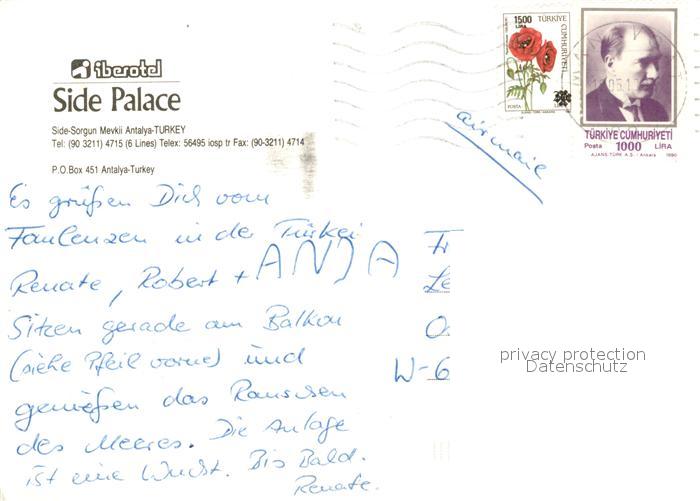 iberotel
Side Palace
Side-Sorgun Mevkii Antalya-TURKEY
Tel: (90 3211) 4715 (6 Lines) Telex: 56495 iosp tr Fax: (90-3211) 4714
P.O.Box 451 Antalya-Turkey
1500
LİRA
TÜRKİYE
CUMHURİYETİ
POSTA
TÜRKİYE CUMHURİYETİ
Posta 1000 LİRA
AJANS-TÜRK A.Ş. - Ankara 1990
airmail
Es grüßen Dich vom
Faulenzen in der Türkei
Renate, Robert + ANJA
Sitzen gerade am Balkon
(siehe Pfeil vorne) und
genießen das Rauschen
des Meeres. Die Anlage
ist eine Wucht. Bis Bald.
Renate.
Fr
Le
W-6
privacy protection
Datenschutz